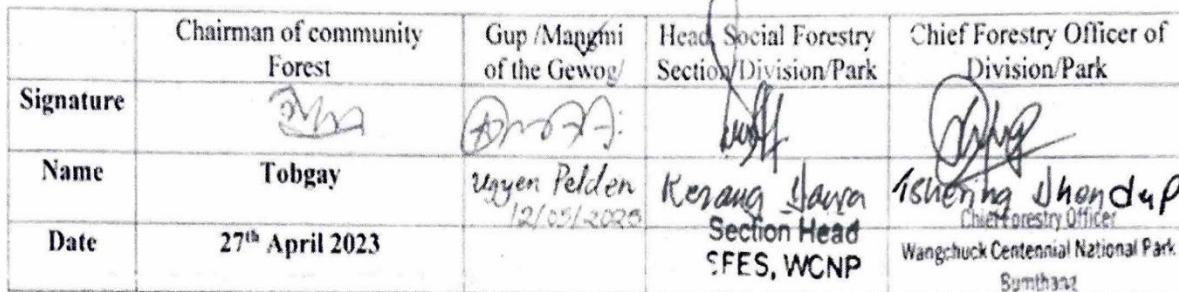 Chairman of community Forest
Gup /Mangmi of the Gewog/
Head, Social Forestry Section/Division/Park
Chief Forestry Officer of Division/Park
Signature
Name
Tobgay
Ugyen Pelden
12/05/2023
Kezang Dawa
Tshering Dhondup
Chief Forestry Officer
Date
27th April 2023
Section Head
SFES, WCNP
Wangchuck Centennial National Park
Bumthang